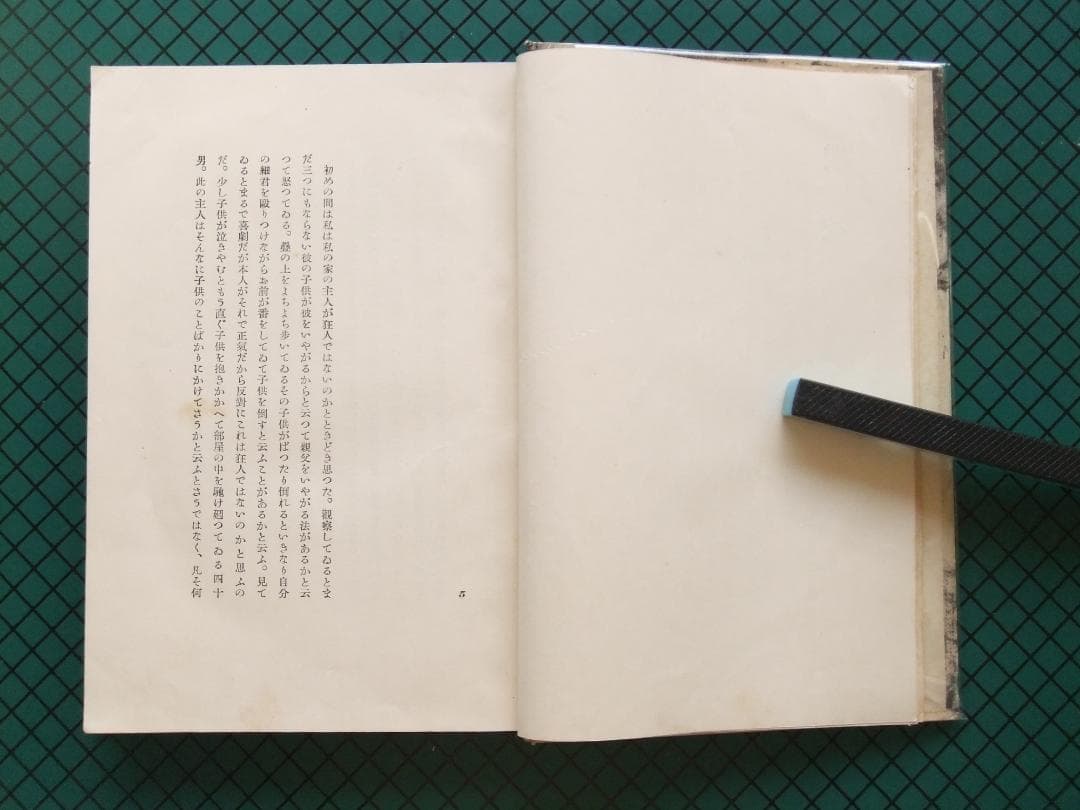 初めの間は私は私の家の主人が狂人ではないのかとときどき思つた。觀察してゐるとま
だ三つにもならない彼の子供が彼をいやがるからと云つて親父をいやがる法があるかと云
つて怒つてゐる。疊の上をよちよち歩いてゐるその子供がばつたり倒れるといきなり自分
の細君を毆りつけながらお前が番をしてゐて子供を倒すと云ふことがあるかと云ふ。見て
ゐるとまるで喜劇だが本人がそれで正氣だから反對にこれは狂人ではないのかと思ふの
だ。少し子供が泣きやむともう直ぐ子供を抱きかかへて部屋の中を馳け廻つてゐる四十
男。此の主人はそんなに子供のことばかりにかけてさうかと云ふとさうではなく、凡そ何
5